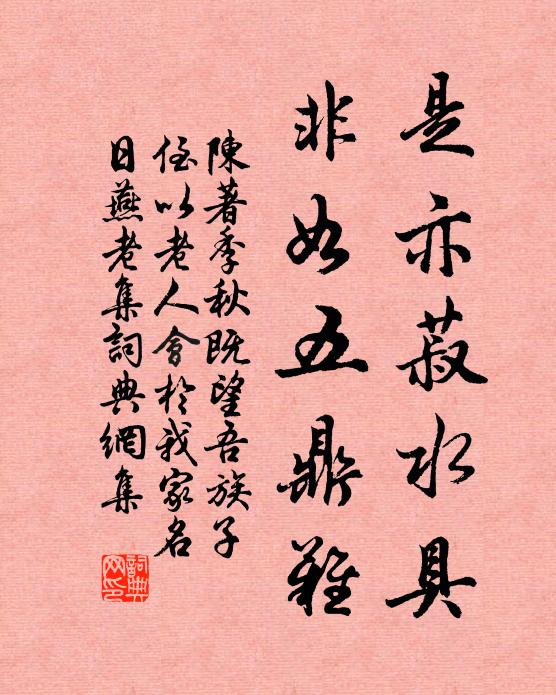 是亦菽水具
非如五鼎難
陳著季秋既望吾族子
侄以老人會於我家名
日燕老集詞典網集
詞典
网印